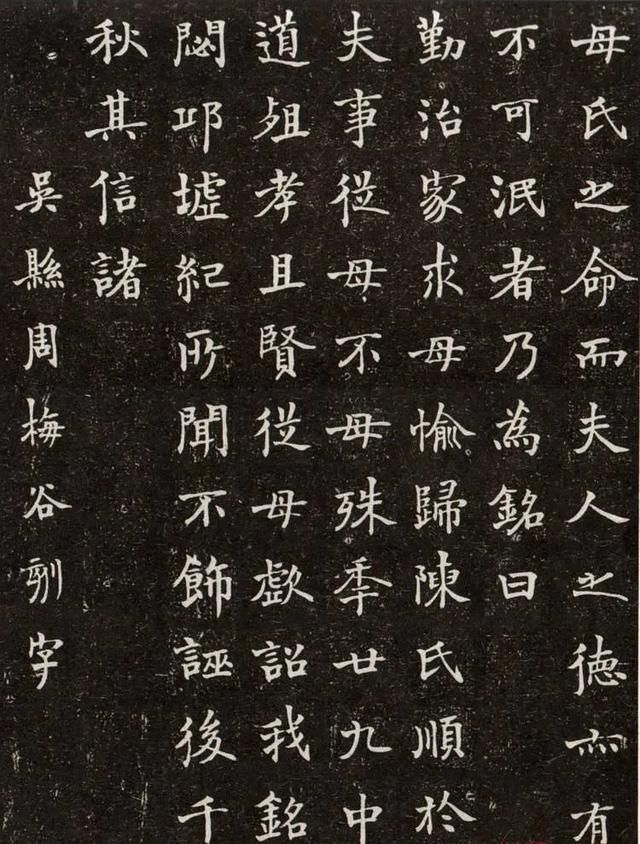 母氏之命而夫人之德亦有
不可泯者乃為銘曰
勤治家求母愉歸陳氏順於
夫事從母不母殊秊廿九中
道殂孝且賢從母歔詔我銘
閟邱墟紀所聞不飾誣後千
秋其信諸
吳縣周梅谷刻字